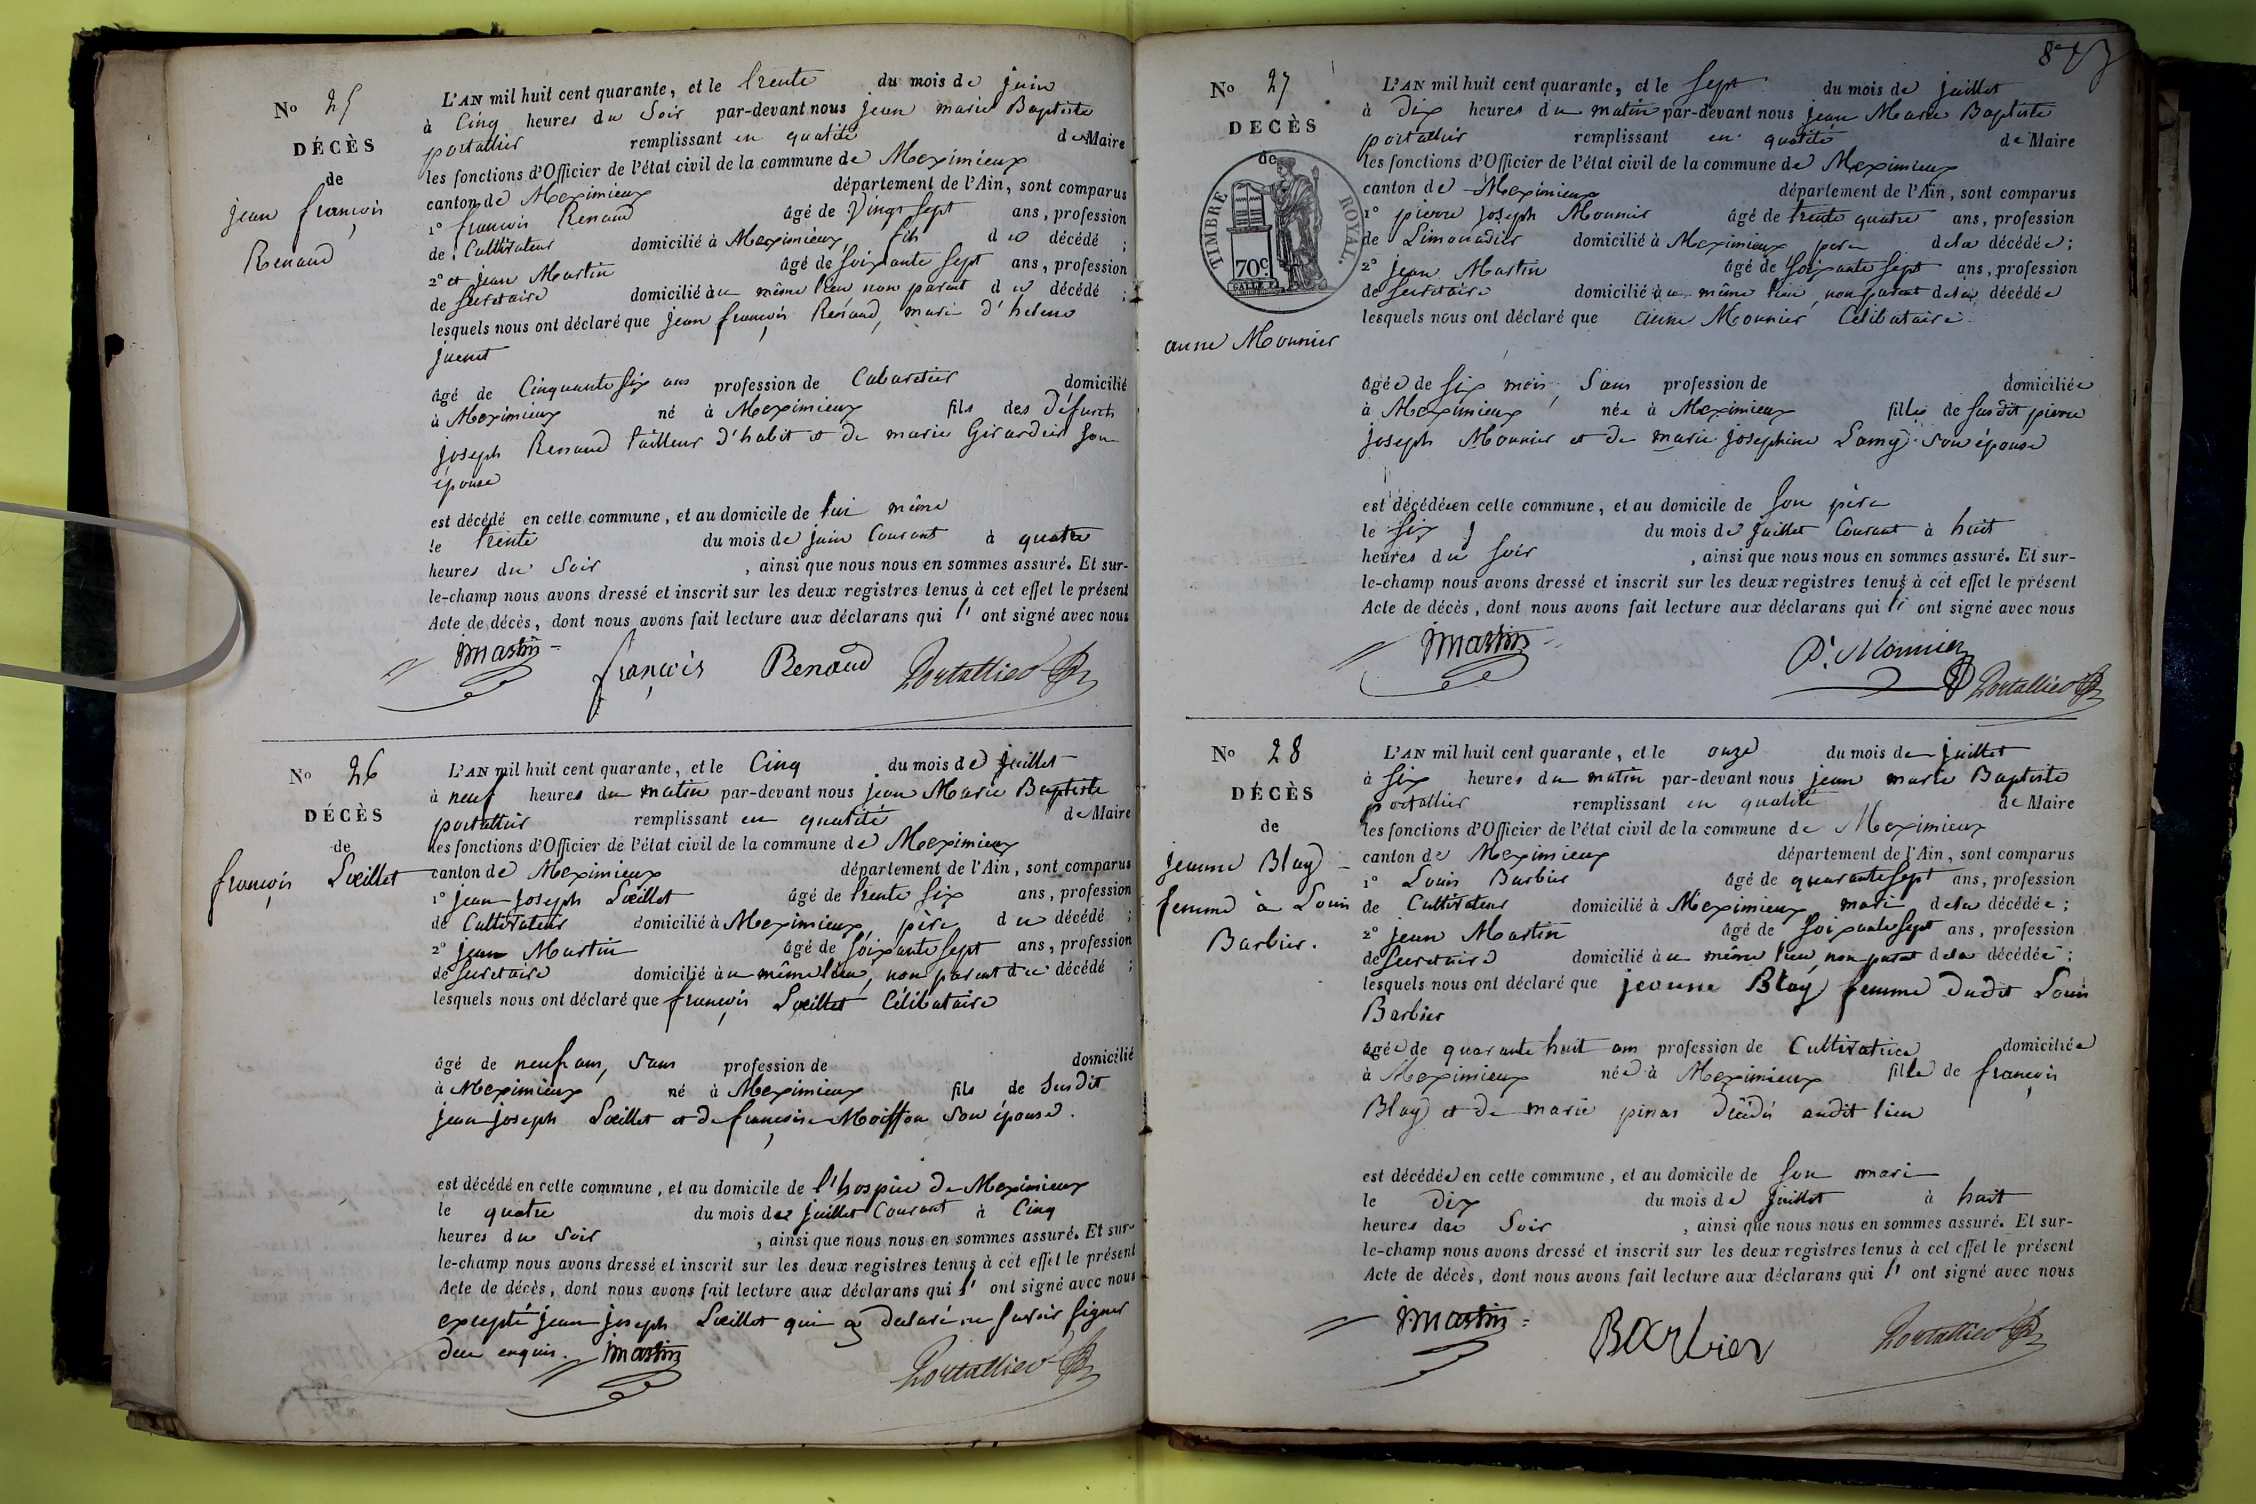 No 25
DÉCÈS
de
jean françois
Renaud
L'AN mil huit cent quarante, et le trente du mois de juin
à Cinq heures du Soir par-devant nous jean marie Baptiste
portallier remplissant en qualité de Maire
les fonctions d'Officier de l'état civil de la commune de Meximieux
canton de Meximieux département de l'Ain, sont comparus
1° françois Renaud âgé de Vingt Sept ans, profession
de Cultivateur domicilié à Meximieux, fils du décédé ;
2° et jean Martin âgé de Soixante Sept ans, profession
de Secretaire domicilié au même lieu non parent du décédé ;
lesquels nous ont déclaré que jean françois Renaud, mari d'helene
juenet
âgé de Cinquante Six ans profession de Cabaretier domicilié
à Meximieux né à Meximieux fils des défunts
joseph Renaud tailleur d'habit et de marie Girardier Son
épouse
est décédé en cette commune, et au domicile de lui même
le trente du mois de juin Courant à quatre
heures du Soir , ainsi que nous nous en sommes assuré. Et sur-
le-champ nous avons dressé et inscrit sur les deux registres tenus à cet effet le présent
Acte de décès, dont nous avons fait lecture aux déclarans qui l' ont signé avec nous
jmartin françois Renaud Portallier
No 26
DÉCÈS
de
françois Lœillet
L'AN mil huit cent quarante, et le Cinq du mois de juillet
à neuf heures du matin par-devant nous jean Marie Baptiste
portallier remplissant en qualité de Maire
les fonctions d'Officier de l'état civil de la commune de Meximieux
canton de Meximieux département de l'Ain, sont comparus
1° jean joseph Lœillet âgé de trente Six ans, profession
de Cultivateur domicilié à Meximieux, père du décédé ;
2° jean Martin âgé de Soixante Sept ans, profession
de Secretaire domicilié au même lieu, non parent du décédé ;
lesquels nous ont déclaré que françois Lœillet Célibataire
âgé de neuf ans, Sans profession de domicilié
à Meximieux né à Meximieux fils de Susdit
jean joseph Lœillet et de françoise Moisson Son épouse.
est décédé en cette commune, et au domicile de l'hospice de Meximieux
le quatre du mois de juillet Courant à Cinq
heures du Soir , ainsi que nous nous en sommes assuré. Et sur-
le-champ nous avons dressé et inscrit sur les deux registres tenus à cet effet le présent
Acte de décès, dont nous avons fait lecture aux déclarans qui l' ont signé avec nous
excepté jean joseph Lœillet qui a declaré ne Savoir Signer
de ce enquis. jmartin Portallier
No 27
DÉCÈS
de
TIMBRE ROYAL.
70c
anne Mounier
L'AN mil huit cent quarante, et le Sept du mois de juillet
à Dix heures du matin par-devant nous jean Marie Baptiste
portallier remplissant en qualité de Maire
les fonctions d'Officier de l'état civil de la commune de Meximieux
canton de Meximieux département de l'Ain, sont comparus
1° pierre joseph Mounier âgé de trente quatre ans, profession
de Limonadier domicilié à Meximieux pere de la décédée ;
2° jean Martin âgé de Soixante Sept ans, profession
de Secretaire domicilié au même lieu, non parent de la décédée
lesquels nous ont déclaré que anne Mounier Célibataire
âgée de Six mois, Sans profession de domiciliée
à Meximieux née à Meximieux fille de Susdit pierre
joseph Mounier et de marie josephine Lamy Son épouse
est décédée en cette commune, et au domicile de Son père
le Six du mois de juillet Courant à huit
heures du Soir , ainsi que nous nous en sommes assuré. Et sur-
le-champ nous avons dressé et inscrit sur les deux registres tenus à cet effet le présent
Acte de décès, dont nous avons fait lecture aux déclarans qui l' ont signé avec nous
jmartin P. Mounier Portallier
No 28
DÉCÈS
de
jeanne Blay
femme à Louis
Barbier.
L'AN mil huit cent quarante, et le onze du mois de juillet
à Six heures du matin par-devant nous jean marie Baptiste
portallier remplissant en qualité de Maire
les fonctions d'Officier de l'état civil de la commune de Meximieux
canton de Meximieux département de l'Ain, sont comparus
1° Louis Barbier âgé de quarante Sept ans, profession
de Cultivateur domicilié à Meximieux mari de la décédée ;
2° jean Martin âgé de Soixante Sept ans, profession
de Secretaire domicilié au même lieu, non parent de la décédée ;
lesquels nous ont déclaré que jeanne Blay femme dudit Louis
Barbier
âgée de quarante huit ans profession de Cultivatrice domiciliée
à Meximieux née à Meximieux fille de françois
Blay et de marie pinas décédés audit lieu
est décédée en cette commune, et au domicile de Son mari
le dix du mois de juillet à huit
heures du Soir , ainsi que nous nous en sommes assuré. Et sur-
le-champ nous avons dressé et inscrit sur les deux registres tenus à cet effet le présent
Acte de décès, dont nous avons fait lecture aux déclarans qui l' ont signé avec nous
jmartin Barbier Portallier